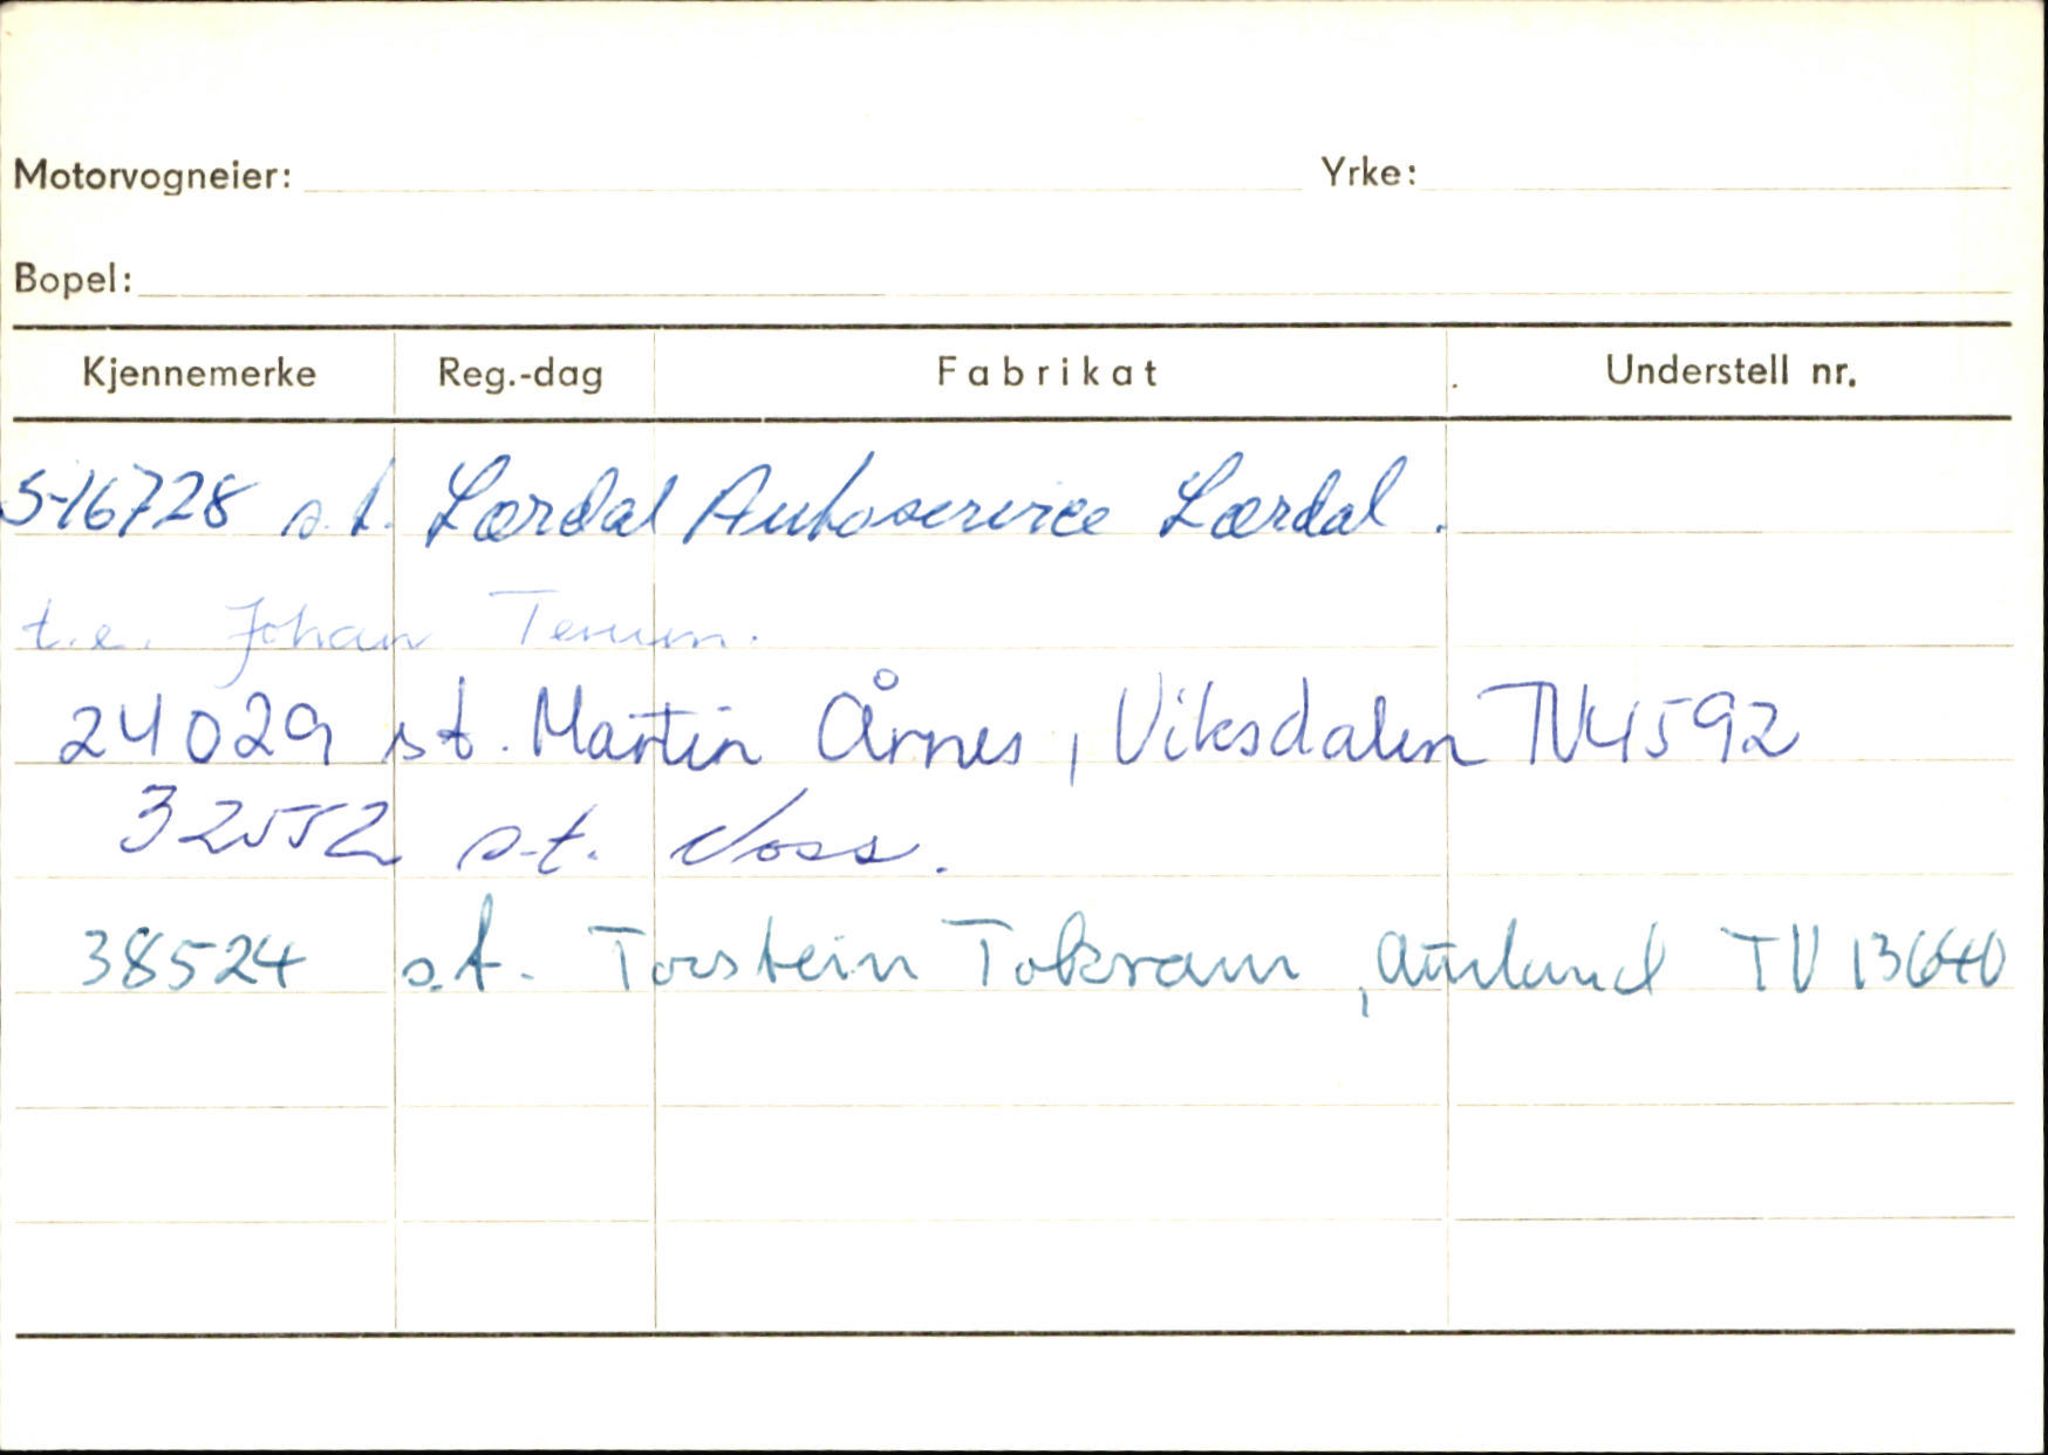 Motorvogneier: Yrke:
Bopel:
Kjennemerke Reg.-dag Fabrikat Understell nr.
S-16728 s.t. Lærdal Autoservice Lærdal.
t.e. Johan
24029 s.t. Martin Årnes, Viksdalen TV4592
32552 s.t. Voss.
38524 s.t. Torstein Tokvam, Aurland TV 13640